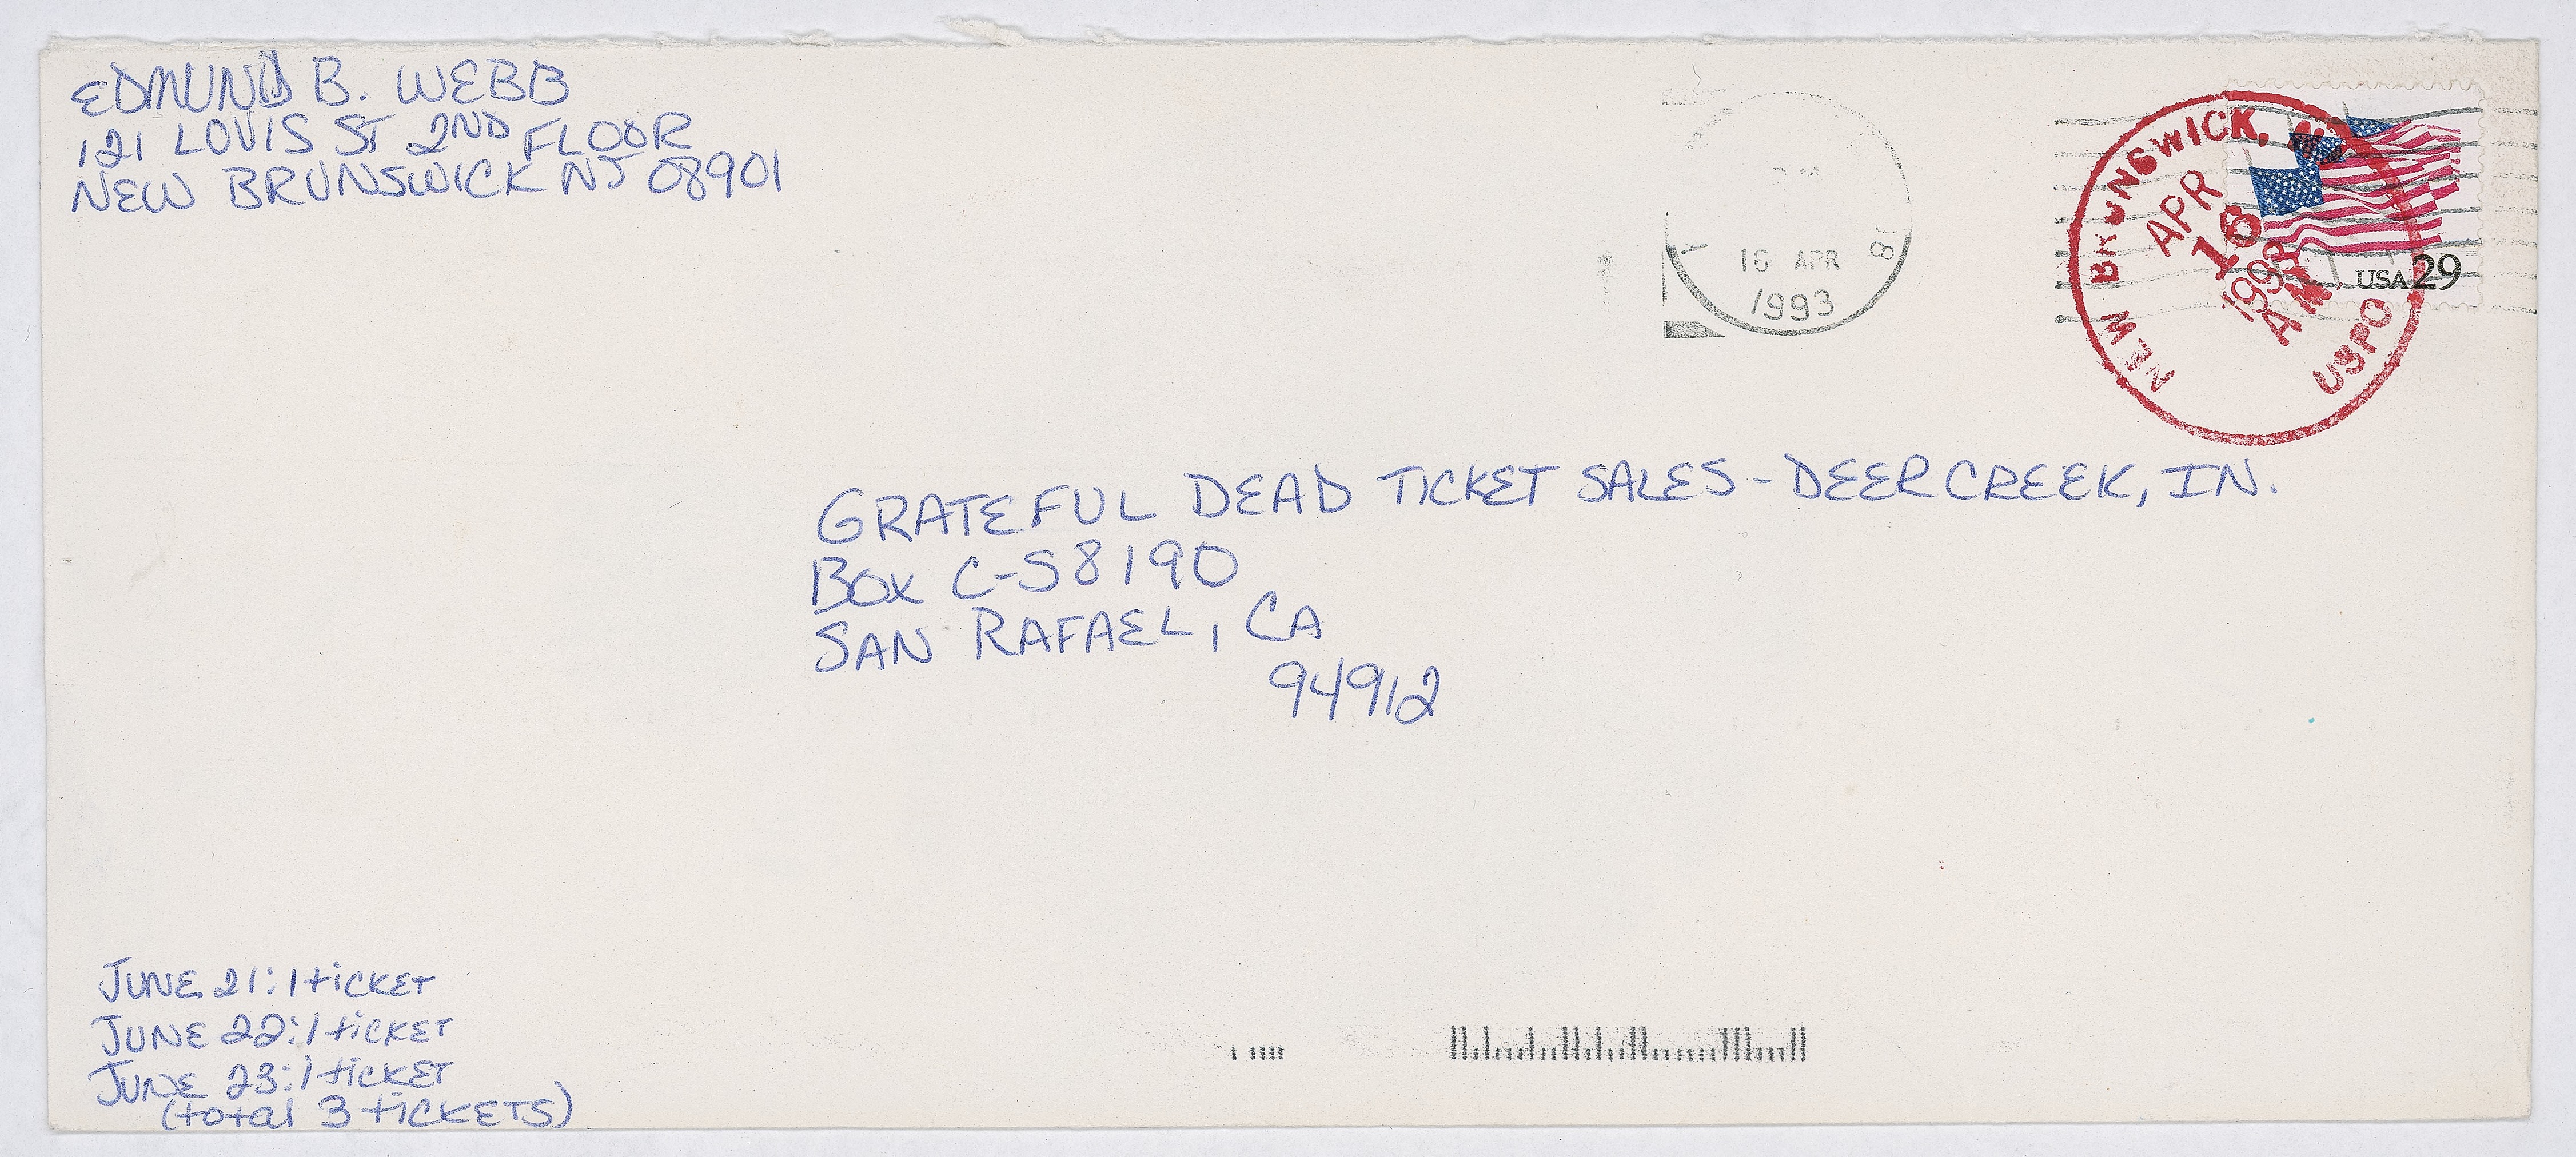 EDMUND B. WEBB
121 LOUIS ST 2ND FLOOR
NEW BRUNSWICK NJ 08901
16 APR
1993
NEW BRUNSWICK, NJ
APR
16
1993
AM
USPO
USA 29
GRATEFUL DEAD TICKET SALES - DEER CREEK, IN.
BOX C-S8190
SAN RAFAEL, CA
94912
JUNE 21: 1 TICKET
JUNE 22: 1 TICKET
JUNE 23: 1 TICKET
(total 3 TICKETS)